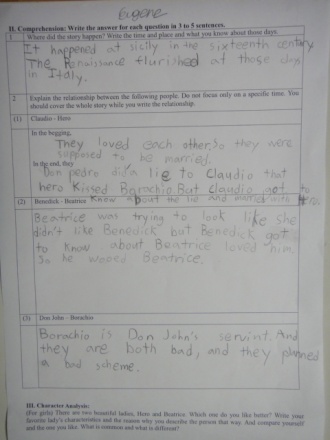 Eugene
II. Comprehension: Write the answer for each question in 3 to 5 sentences.
1 Where did the story happen? Write the time and place and what you know about those days.
It happened at sicily in the sixteenth century.
The Renaissance flurished at those days
in Italy.
2 Explain the relationship between the following people. Do not focus only on a specific time. You
should cover the whole story while you write the relationship.
(1) Claudio - Hero
In the begging,
They loved each other, so they were
supposed to be married.
In the end, they
Don pedro did a lie to Claudio that
hero kissed Borachio. But Claudio got to
(2) Benedick - Beatrice know about the lie and married with
Beatrice was trying to look like she
didn't like Benedick but Benedick got
to know about Beatrice loved him
So he wooed Beatrice.
(3) Don John - Borachio
Borachio is Don John's servint. And
they are both bad, and they planned
a bad scheme.
III. Character Analysis:
(For girls) There are two beautiful ladies, Hero and Beatrice. Which one do you like better? Write your
favorite lady's characteristics and the reason why you describe the person that way. And compare yourself
and the one you like. What is common and what is different?